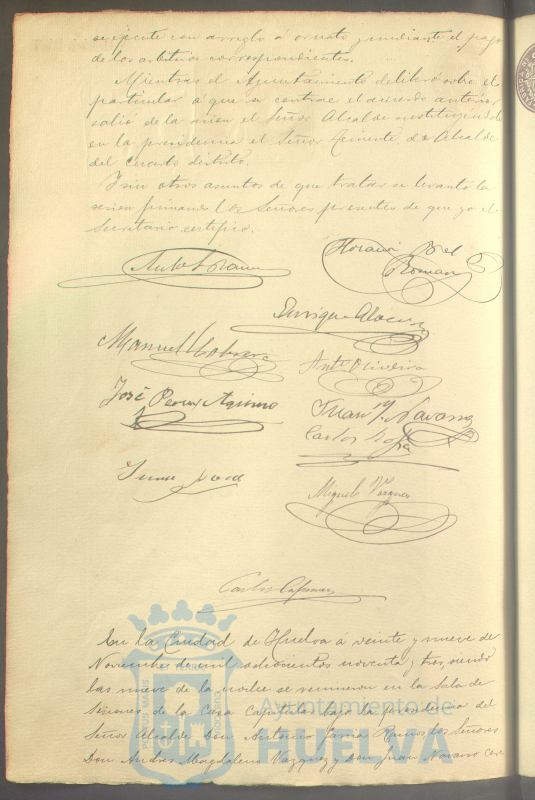 se ejecute con arreglo á ornato y mediante el pago
de los arbitrios correspondientes.
Mientras el Ayuntamiento deliberó sobre el
particular á que se contrae el acuerdo anterior,
salió de la misma el Señor Alcalde sustituyéndole
en la presidencia el Señor Teniente de Alcalde
del cuarto distrito.
Y sin otros asuntos de que tratar se levantó la
sesion firmando los Señores presentes de que yo el
Secretario certifico.
Horacio Bel
Roman
Enrique
Manuel
Antº Oliveira
José Perez Aquino
Juan M. Navarro
Carlos
Miguel Vazquez
Carlos
En la Ciudad de Huelva á veinte y nueve de
Noviembre de mil ochocientos noventa y tres, siendo
las nueve de la noche se reunieron en la Sala de
Sesiones de la Casa Capitular bajo la presidencia del
Señor Alcalde Don Antonio García Ramos los Señores
Don Andres Magdaleno Vazquez y Don Juan Navarro
Ayuntamiento de
HUELVA